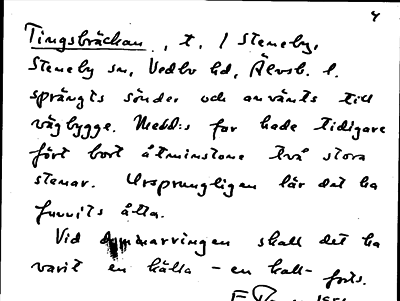 4
Tingsbräckan, t. / Steneby,
Steneby sn, Vedbo hd, Älvsb. l.
sprängts sönder och använts till
vägbygge. Medd:s far hade tidigare
fört bort åtminstone två stora
stenar. Ursprungligen lär det ha
funnits åtta.
Vid skall det ha
varit en källa – en kall- forts.